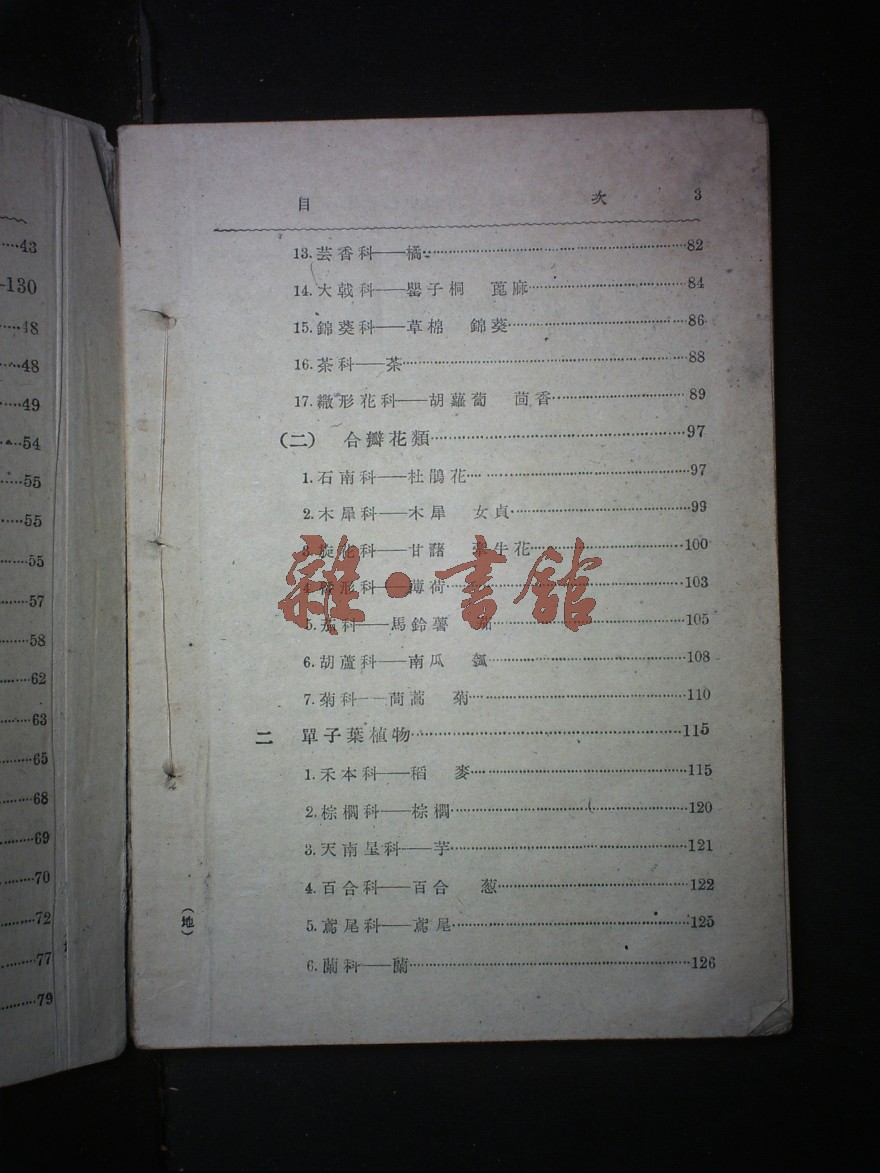 43
130
48
48
49
54
55
55
55
57
58
62
63
65
68
69
70
72
77
79
目 次 3
13.芸香科——橘……82
14.大戟科——罌子桐 蓖麻……84
15.錦葵科——草棉 錦葵……86
16.茶科——茶……88
17.繖形花科——胡蘿蔔 茴香……89
(二) 合瓣花類……97
1.石南科——杜鵑花……97
2.木犀科——木犀 女貞……99
3.旋花科——甘藷 牽牛花……100
4.脣形科——薄荷……103
5.茄科——馬鈴薯 茄……105
6.胡蘆科——南瓜 瓠……108
7.菊科——茼蒿 菊……110
二 單子葉植物……115
1.禾本科——稻 麥……115
2.棕櫚科——棕櫚……120
3.天南星科——芋……121
4.百合科——百合 葱……122
5.鳶尾科——鳶尾……125
6.蘭科——蘭……126
(地)
雜·書館